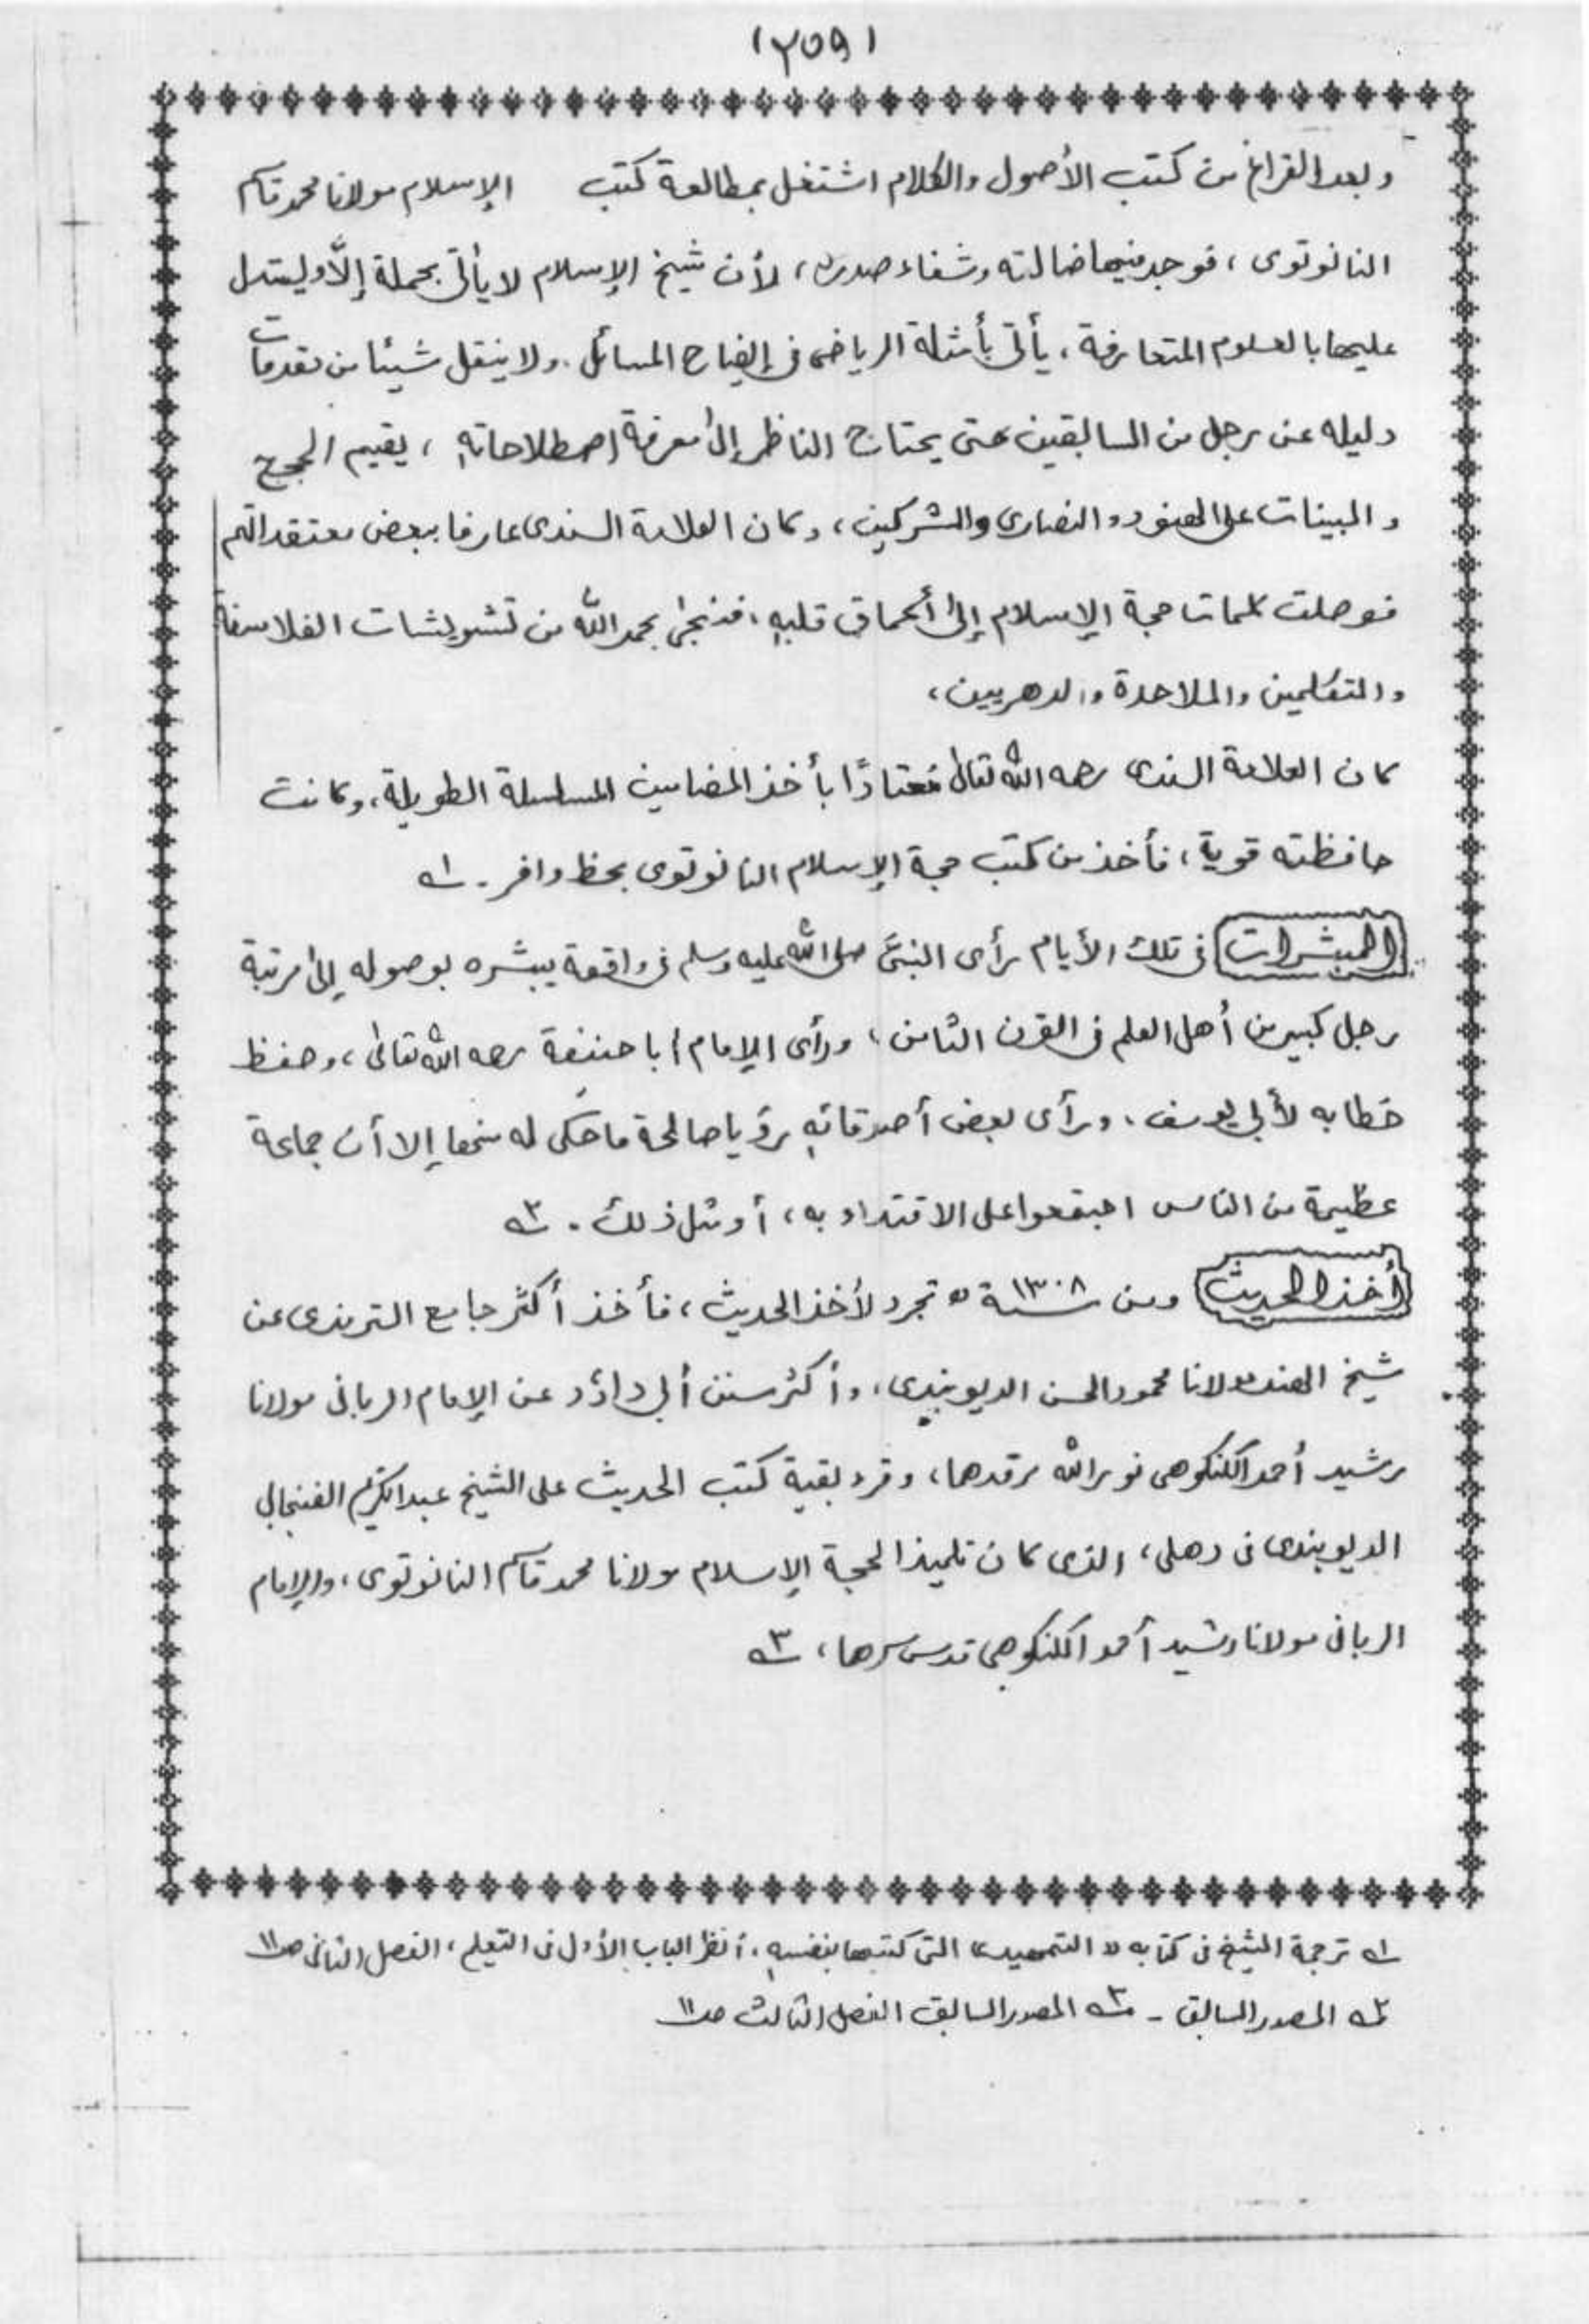 (٢٥٩)
وبعد الفراغ من كتب الأصول والكلام اشتغل بمطالعة كتب الإسلام مولانا محمد قاسم
النانوتوى ، فوجد فيها ضالته وشفاء صدره ، لأن شيخ الإسلام لا يأتى بجملة إلّا وليستدل
عليها بالعلوم المتعارفة ، يأتى بأمثلة الرياضى فى إيضاح المسائل . ولا ينقل شيئا من مقدمات
دليله عن رجل من السابقين حتى يحتاج الناظر إلى معرفة اصطلاحاته ، يقيم الحجج
والبينات على الهنود والنصارى والمشركين ، وكان العلامة السندى عارفا ببعض معتقداتهم
فوصلت كلمات حجة الإسلام إلى أعماق قلبه ، فنجى بحمد الله من تشويشات الفلاسفة
والمتكلمين والملاحدة والدهريين ،
كان العلامة السندى رحمه الله تعالى معتادًا بأخذ المضامين المسلسلة الطويلة ، وكانت
حافظته قوية ، فأخذ من كتب حجة الإسلام النانوتوى بحظ وافر . ١ه
المبشرات فى تلك الأيام رأى النبىَّ صلى الله عليه وسلم فى واقعة يبشره بوصوله إلى مرتبة
رجل كبير من أهل العلم فى القرن الثامن ، ورأى الإمام أبا حنيفة رحمه الله تعالى ، وحفظ
خطابه لأبى يوسف ، ورأى بعض أصدقائه رؤيا صالحة ما حكى له منها إلا أن جماعة
عظيمة من الناس اجتمعوا على الاقتداء به ، أو مثل ذلك . ٢ه
أخذ الحديث ومن سنة ١٣٠٨ه تجرد لأخذ الحديث ، فأخذ أكثر جامع الترمذى عن
شيخ الهند مولانا محمود الحسن الديوبندى ، وأكثر سنن أبى داؤد عن الإمام الربانى مولانا
رشيد أحمد الكنكوهى نور الله مرقدهما ، وقرء بقية كتب الحديث على الشيخ عبد الكريم الفنجابى
الديوبندى فى دهلى ، الذى كان تلميذا لحجة الإسلام مولانا محمد قاسم النانوتوى ، والإمام
الربانى مولانا رشيد أحمد الكنكوهى قدس سرهما ، ٣ه
١ه ترجمة الشيخ فى كتابه " التمهيد " التى كتبها بنفسه ، أنظر الباب الأول فى التعلم ، الفصل الثانى صـ١١
٢ه المصدر السابق - ٣ه المصدر السابق الفصل الثالث صـ١١